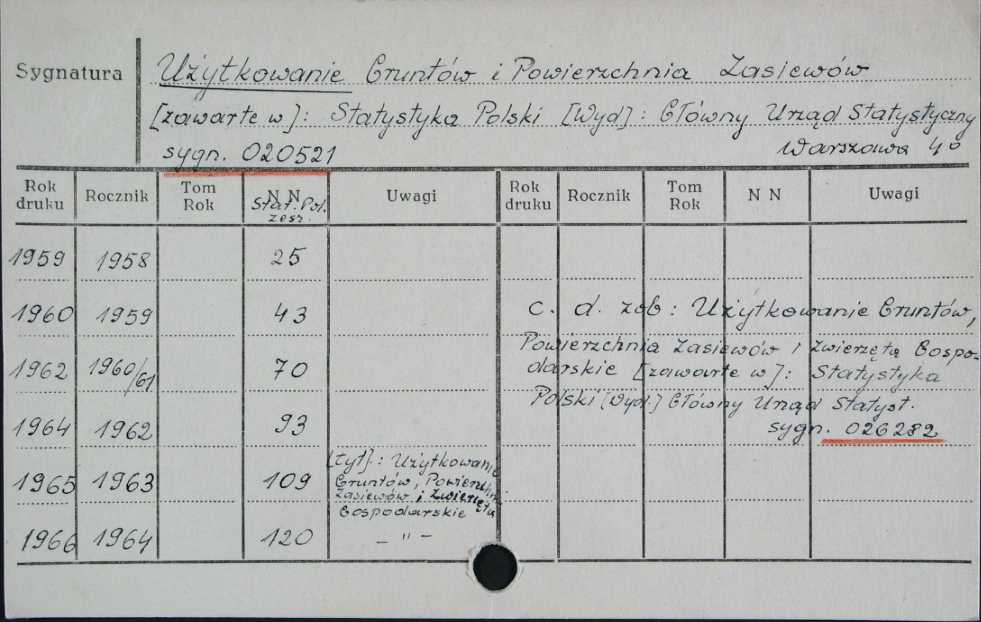 Sygnatura
Użytkowanie Gruntów i Powierzchnia Zasiewów
[zawarte w]: Statystyka Polski [Wyd]: Główny Urząd Statystyczny
sygn. 020521 Warszawa 4°
Rok druku Rocznik Tom Rok N N Stat. Pol. zesz. Uwagi Rok druku Rocznik Tom Rok N N Uwagi
1959 1958 25
1960 1959 43
1962 1960/61 70
1964 1962 93
1965 1963 109 [tyt]: Użytkowanie
Gruntów, Powierzchn.
Zasiewów i Zwierzęta
Gospodarskie
1966 1964 120 – " –
c. d. zob: Użytkowanie Gruntów,
Powierzchnia Zasiewów i Zwierzęta Gospo-
darskie [zawarte w]: Statystyka
Polski [Wyd.] Główny Urząd Statyst.
sygn. 026282